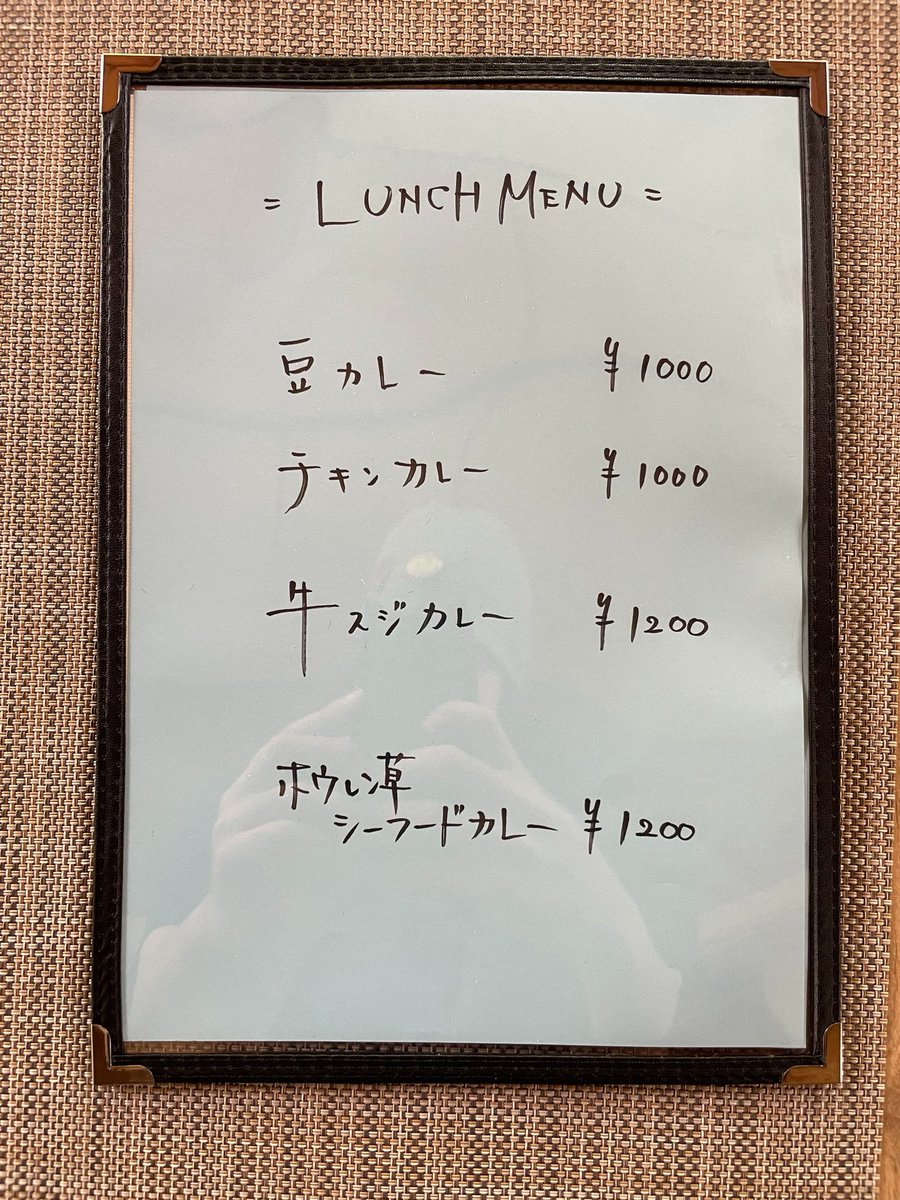 = LUNCH MENU =
豆カレー ¥1000
チキンカレー ¥1000
牛スジカレー ¥1200
ホウレン草
シーフードカレー ¥1200